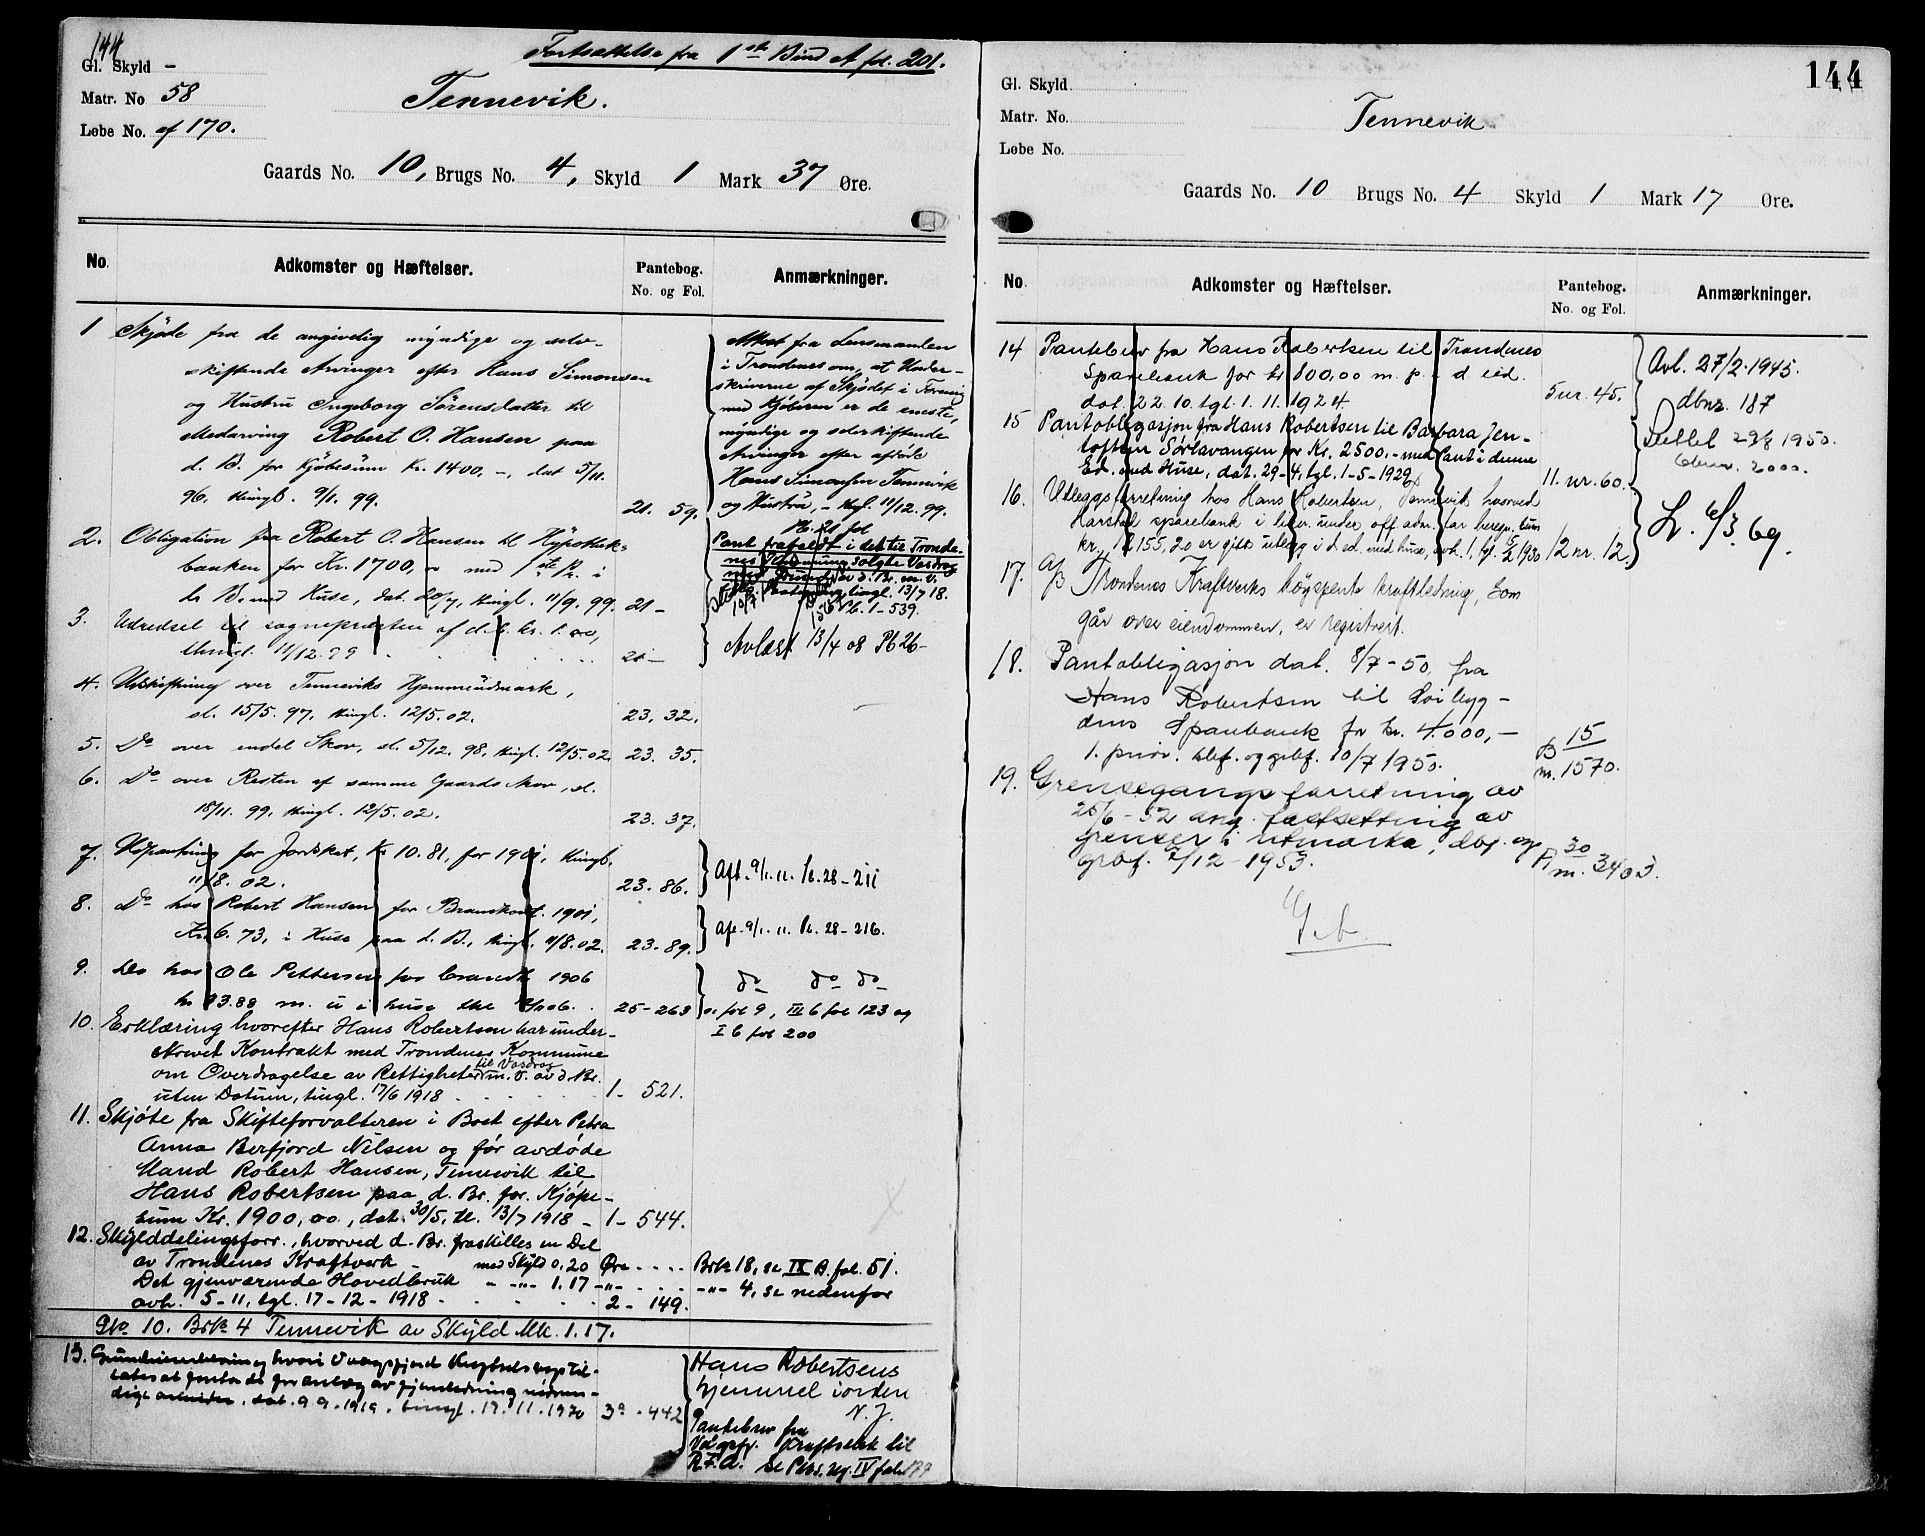 144
Fortsættelse fra 1ste Bind A fol. 201.
Gl. Skyld –
Matr. No 58
Tennevik.
Løbe No. af 170.
Gaards No. 10, Brugs No. 4, Skyld 1 Mark 37 Øre.
No. Adkomster og Hæftelser. Pantebog. No. og Fol. Anmærkninger.
1 Skjøde fra de angivelig myndige og selv-
skiftende Arvinger efter Hans Simonsen
og Hustru Ingeborg Sørensdatter til
Medarving Robert O. Hansen paa
d. B. for Kjøbesum Kr. 1400, –, dat 5/11.
96, thingl. 9/1. 99. 21. 59.
Attest fra Lensmanden
i Trondenes om, at Under-
skriverne af Skjødet i Forening
med Kjøberen er de eneste,
myndige og selvskiftende
Arvinger efter afdøde
Hans Simonsen Tennevik
og Hustru, – thgl. 11/12. 99.
2. Obligation fra Robert O. Hansen til Hypothek-
banken for Kr. 1700, – med 1ste Pr. i
d. B. med Huse, dat. 20/7, thingl. 11/9. 99. 21 –
Pant frafaldt i det til Tronde-
nes Kommune solgte Vasdrag
13/7 18.
Pb. 1 – 539.
3. Udredsel til sognepresten af d. B. kr. 1.00,
thingl. 11/12. 99 21 –
Avlæst 13/4 08 Pb 26 –
4. Udskiftning over Tenneviks Hjemmeudmark,
sl. 15/5. 97, thingl. 12/5. 02. 23. 32.
5. Do over endel Skov, sl. 5/12. 98, thingl. 12/5. 02. 23. 35.
6. Do over Resten af samme Gaards Skov, sl.
18/11. 99, thingl. 12/5. 02. 23. 37.
7. Udpantning for Jordskat, Kr 10. 81, for 1901, thingl.
11/8. 02. 23. 86.
Afl. 9/1. 11. Pb. 28 – 211
8. Do hos Robert Hansen for Brandkont. 1901,
Kr. 6. 73, i Huse paa d. B., thingl. 11/8. 02. 23. 89.
Afl. 9/1. 11. Pb. 28 – 216.
9. Do hos Ole Pettersen for Brandk 1906
kr 23.88 m. u i huse 25 – 263
do do do
se fol 9, III b fol 123 og
I b fol 200
10. Erklæring hvorefter Hans Robertsen har under-
skrevet Kontrakt med Trondenes Kommune
om Overdragelse av Rettigheter til Vasdrag m. v. av d. Br.
uten Datum, tingl. 17/6 1918 1 – 521.
11. Skjøte fra Skifteforvalteren i Boet efter Petra
Anna Berfjord Nilsen og før avdøde
Mand Robert Hansen, Tennevik til
Hans Robertsen paa d. Br. for Kjøpe-
sum Kr. 1900, 00, dat. 30/5, tl. 13/7 1918 – 1 – 544.
12. Skylddelingsforr., hvorved d. Br. fraskilles en Del
av Trondenes Kraftverk – med Skyld 0.20 Øre . . . . Brk 18, se IX B. fol. 51.
Det gjenværende Hovedbruk " – " – 1.17 – " – . . . – " – 4, se nedenfor
avh. 5 – 11, tgl. 17 – 12 – 1918 2 – 149.
Gk 10. Brk 4 Tennevik av Skyld Mk. 1. 17.
13. hvori Vaagsfjord
dat. 9.9. 1919, tingl. 17. 11. 1920 3a – 442
Hans Robertsens
hjemmel iorden
N. J.
Pantebrev fra
Kraftselsk til
R.F.A. Se Pers. reg. IV fol. 177
144
Gl. Skyld
Matr. No.
Tennevik
Løbe No.
Gaards No. 10 Brugs No. 4 Skyld 1 Mark 17 Øre.
No. Adkomster og Hæftelser. Pantebog. No. og Fol. Anmærkninger.
14 Pantebrev fra Hans Robertsen til Trondenes
Sparebank for kr 800,00 m. p. i d eid.
dat. 22. 10. tgl. 1. 11. 1924. 5 nr. 45.
Avl. 27/2. 1945.
dbnr. 187
15 Pantobligasjon fra Hans Robertsen til Barbara Jen-
toftsen Sørlavangen for Kr. 2500.- med Pant i denne
Ed. med Huse, dat. 29-4, tgl. 1-5-1929 11. nr. 60.
Slettet 29/8 1950.
16. Utleggsforretning hos Hans Robertsen, Tennevik hvorved
Harstad sparebank i likv. under off. adm. for beregn. sum
kr. 155,20 er gitt utlegg i d. ed. med huse, 12 nr. 12.
17. A/S Trondenes Kraftverks høgspente kraftledning, som
går over eiendommen, er registrert.
18. Pantobligasjon dat. 8/7 – 50, fra
Hans Robertsen til
Sparebank for kr. 4.000, –
1. prior. 10/7 1950. B 15
nr. 1570.
19. Grensegangsforretning av
25/6 – 52 ang. fastsetting av
grenser i utmarka, dbf. og
grbf. 7/12 – 1953. 30
3403.